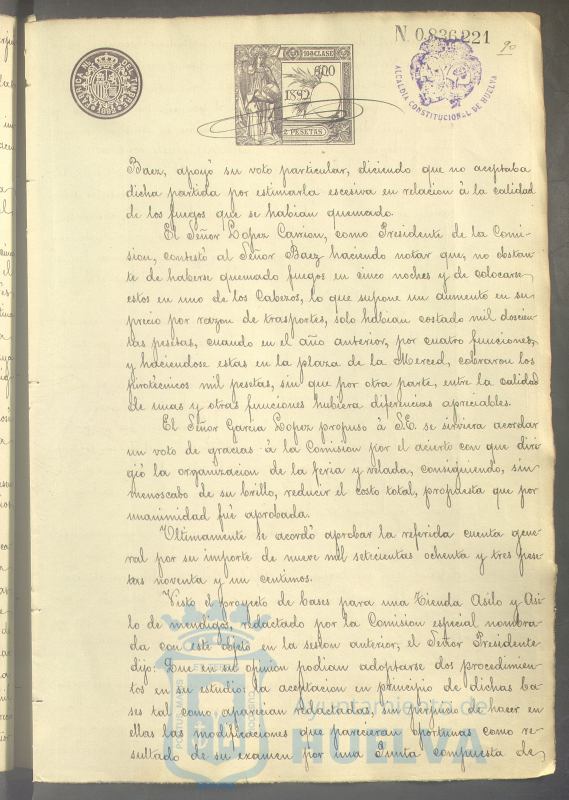 N. 0.836.221
90
10ª CLASE
1892
2 PESETAS
ALCALDIA CONSTITUCIONAL DE HUELVA
Baez, apoyó su voto particular, diciendo que no aceptaba
dicha partida por estimarla escesiva en relacion à la calidad
de los fuegos que se habian quemado.
El Señor Lopez Carrion, como Presidente de la Comi-
sion, contestó al Señor Baez haciendo notar que, no obstan-
te de haberse quemado fuegos en cinco noches y de colocarse
estos en uno de los Cabezos, lo que supone un aumento en su
precio por razon de trasportes, solo habian costado mil doscien-
tas pesetas, cuando en el año anterior, por cuatro funciones,
y haciendose estas en la plaza de la Merced, cobraron los
pirotécnicos mil pesetas, sin que por otra parte, entre la calidad
de unas y otras funciones hubiera diferencias apreciables.
El Señor Garcia Lopez propuso à S.E. se sirviera acordar
un voto de gracias à la Comision por el acierto con que diri-
gió la organizacion de la feria y velada, consiguiendo, sin
menoscabo de su brillo, reducir el costo total, propuesta que por
unanimidad fué aprobada.
Ultimamente se acordó aprobar la referida cuenta gene-
ral por su importe de nueve mil setecientas ochenta y tres pese-
tas noventa y un centimos.
Visto el proyecto de bases para una Tienda Asilo y Asi-
lo de mendigos, redactado por la Comision especial nombra-
da con este objeto en la sesion anterior, el Señor Presidente
dijo: Que en su opinion podian adoptarse dos procedimien-
tos en su estudio: la aceptacion en principio de dichas ba-
ses tal como aparecian redactadas, sin perjuicio de hacer en
ellas las modificaciones que parecieran oportunas como re-
sultado de su examen por una Junta compuesta de
Ayuntamiento de
HUELVA